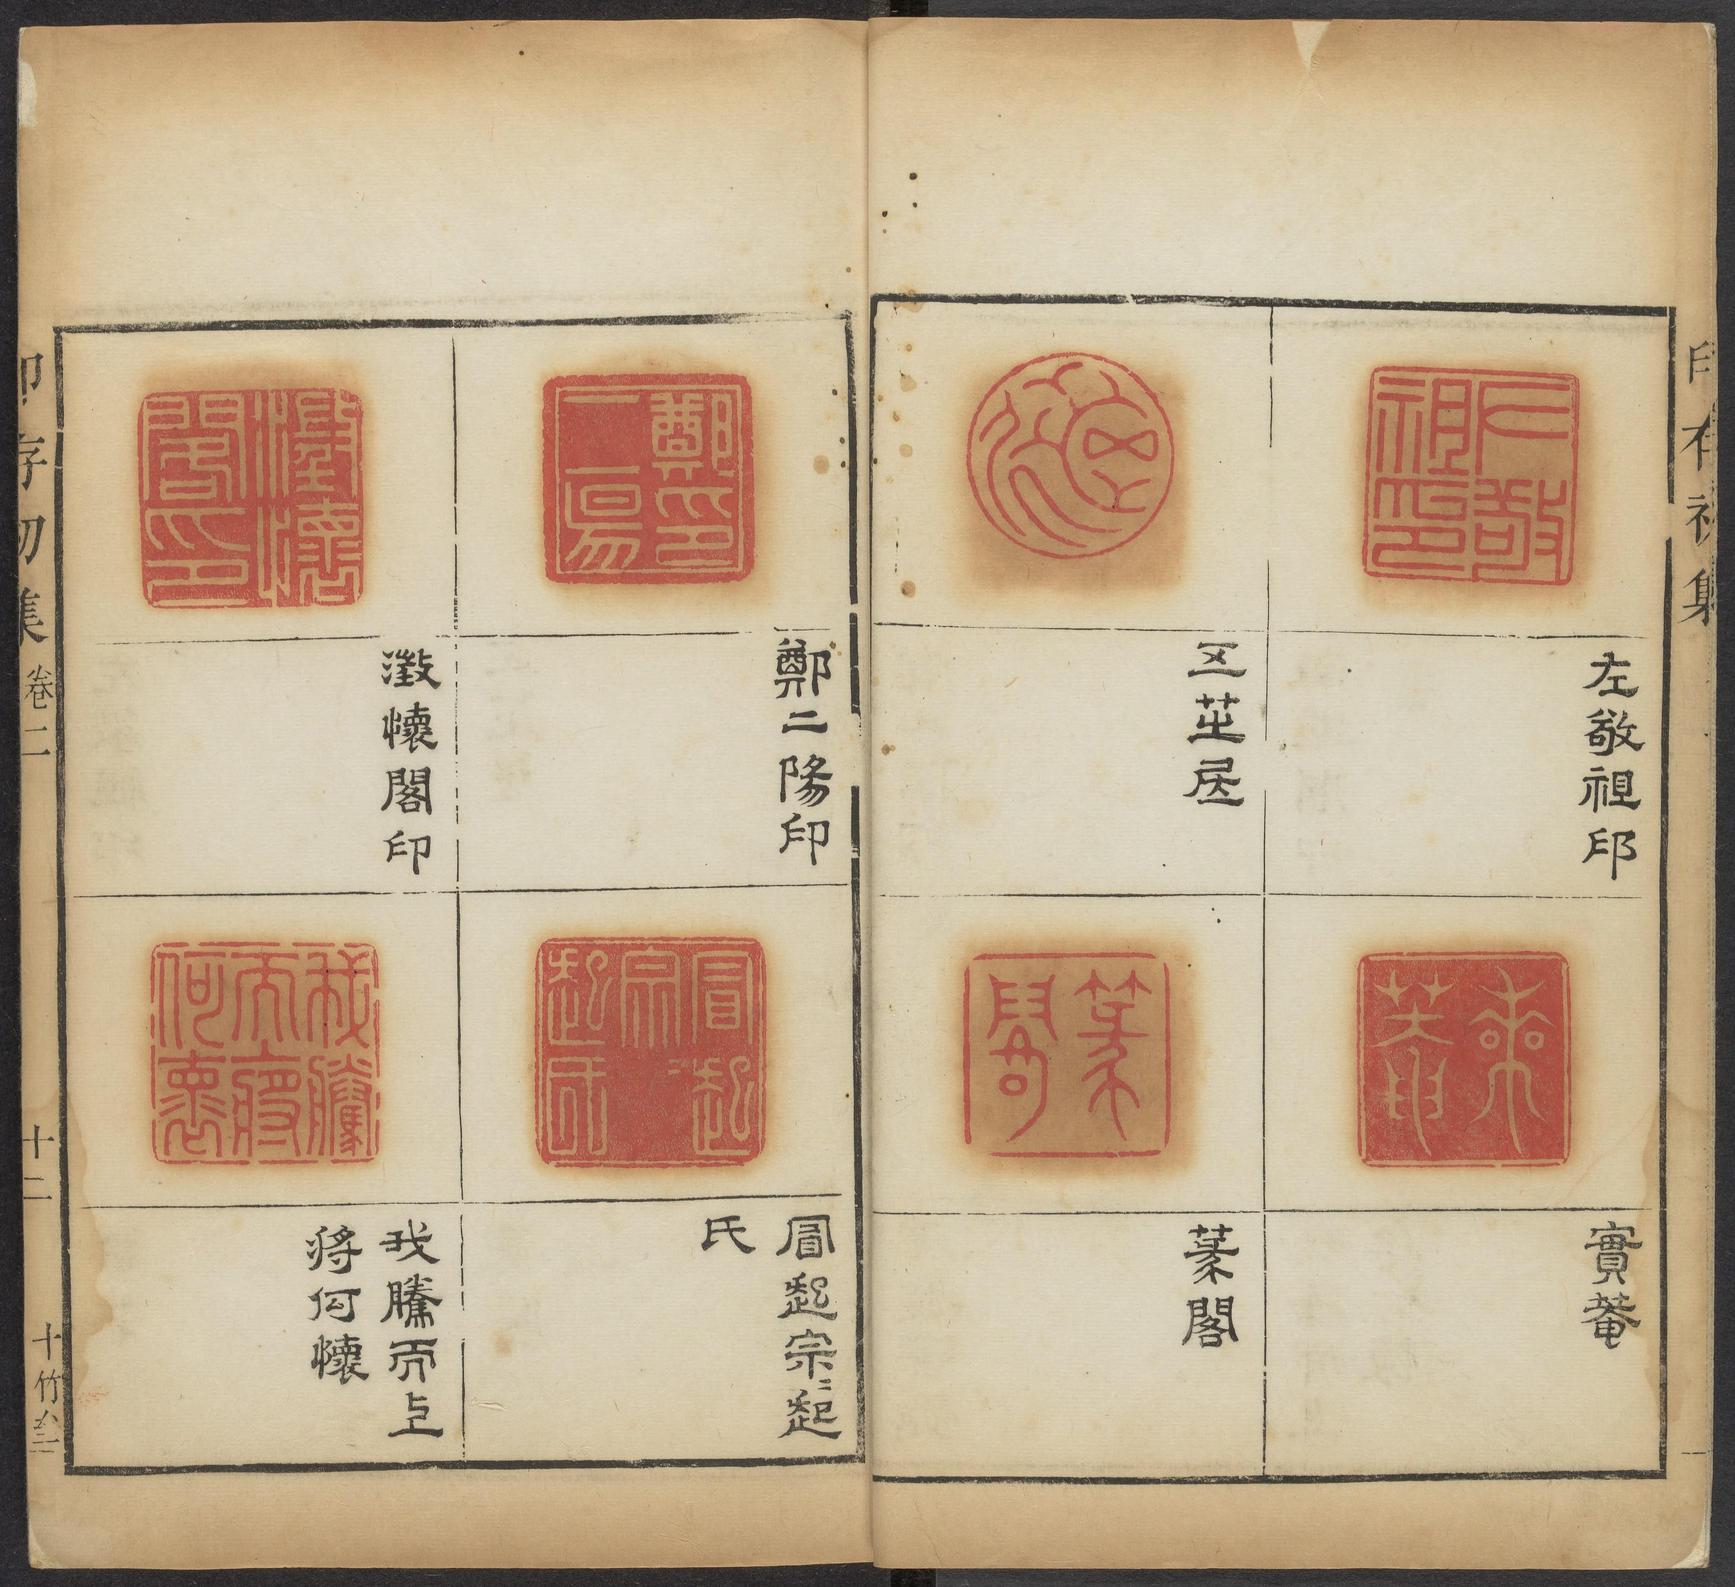 印存初集
左敬祖印
五芝居
實菴
篆閣
鄭二陽印
澂懷閣印
冒起宗〻起
氏
我騰而上
將何懷
印存初集
卷二
十二
十竹齋